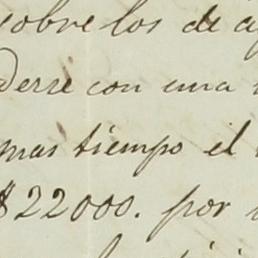 sobre los de
derse con una
mas tiempo el
$22000. por